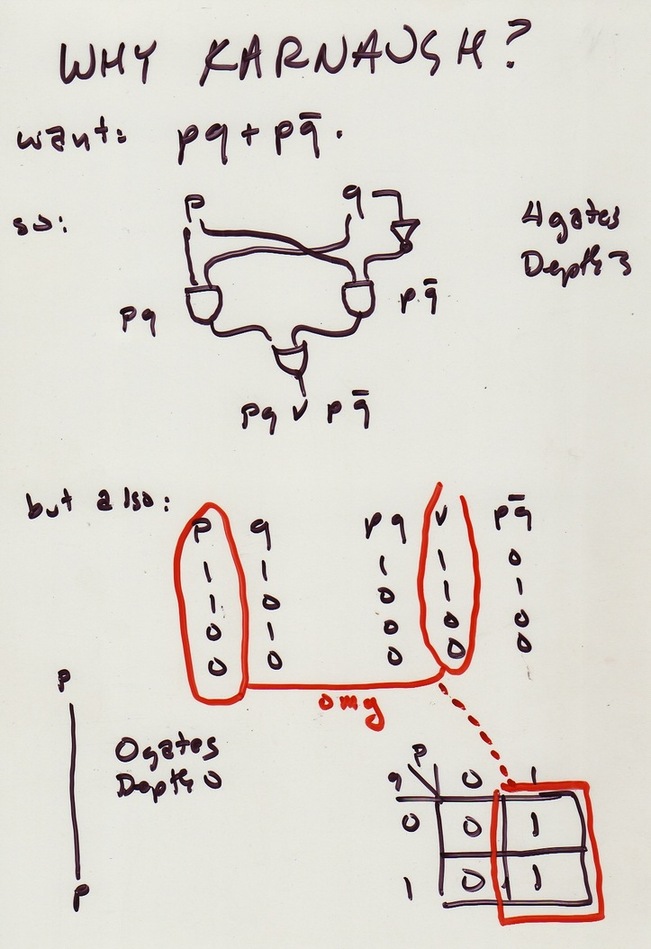 WHY KARNAUGH?
want: pq + pq̄.
so: p q 4 gates
Depth 3
pq pq̄
pq v pq̄
but also:
p q pq v pq̄
1 1 1 1 0
1 0 0 1 1
0 1 0 0 0
0 0 0 0 0
omg
p
0 gates
Depth 0
p
q p 0 1
0 0 1
1 0 1